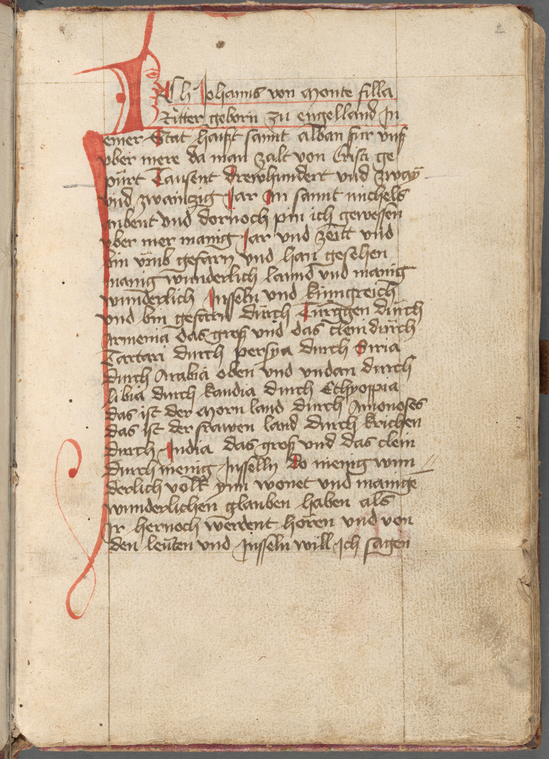 Ich Johannis von Monte filla
Ritter geborn zu engelland in
einer Stat haist sannt alban fur vnß
vber mere da man zalt von Cristi ge
pürt Tausent drewhundert vnd zway
vnd zwainzig Jar An sannt michels
aubent vnd dornoch pin ich gewesen
vber mer manig Jar vnd zeitt vnd
bin vmb gefarn vnd han gesehen
manig wunderlich lannd vnd manig
wunderlich Jnseln vnd künngreich
vnd bin gefarn durch Türggen dürch
Armenia das groß vnd das clein dürch
Tartari durch persya durch Siria
durch Arabia oben vnd vndan durch
libia durch kandia durch Ethyoppia
das ist der morn land durch Amonoses
das ist der frawen land durch krichen
durch India das groß vnd das clein
durch menig Jnsselln do menig wun
derlich volk ynn wonet vnd manige
wunderlichen glauben haben als
Jr hernoch werdent hören vnd von
den leüten vnd Jnsseln will ich sagen